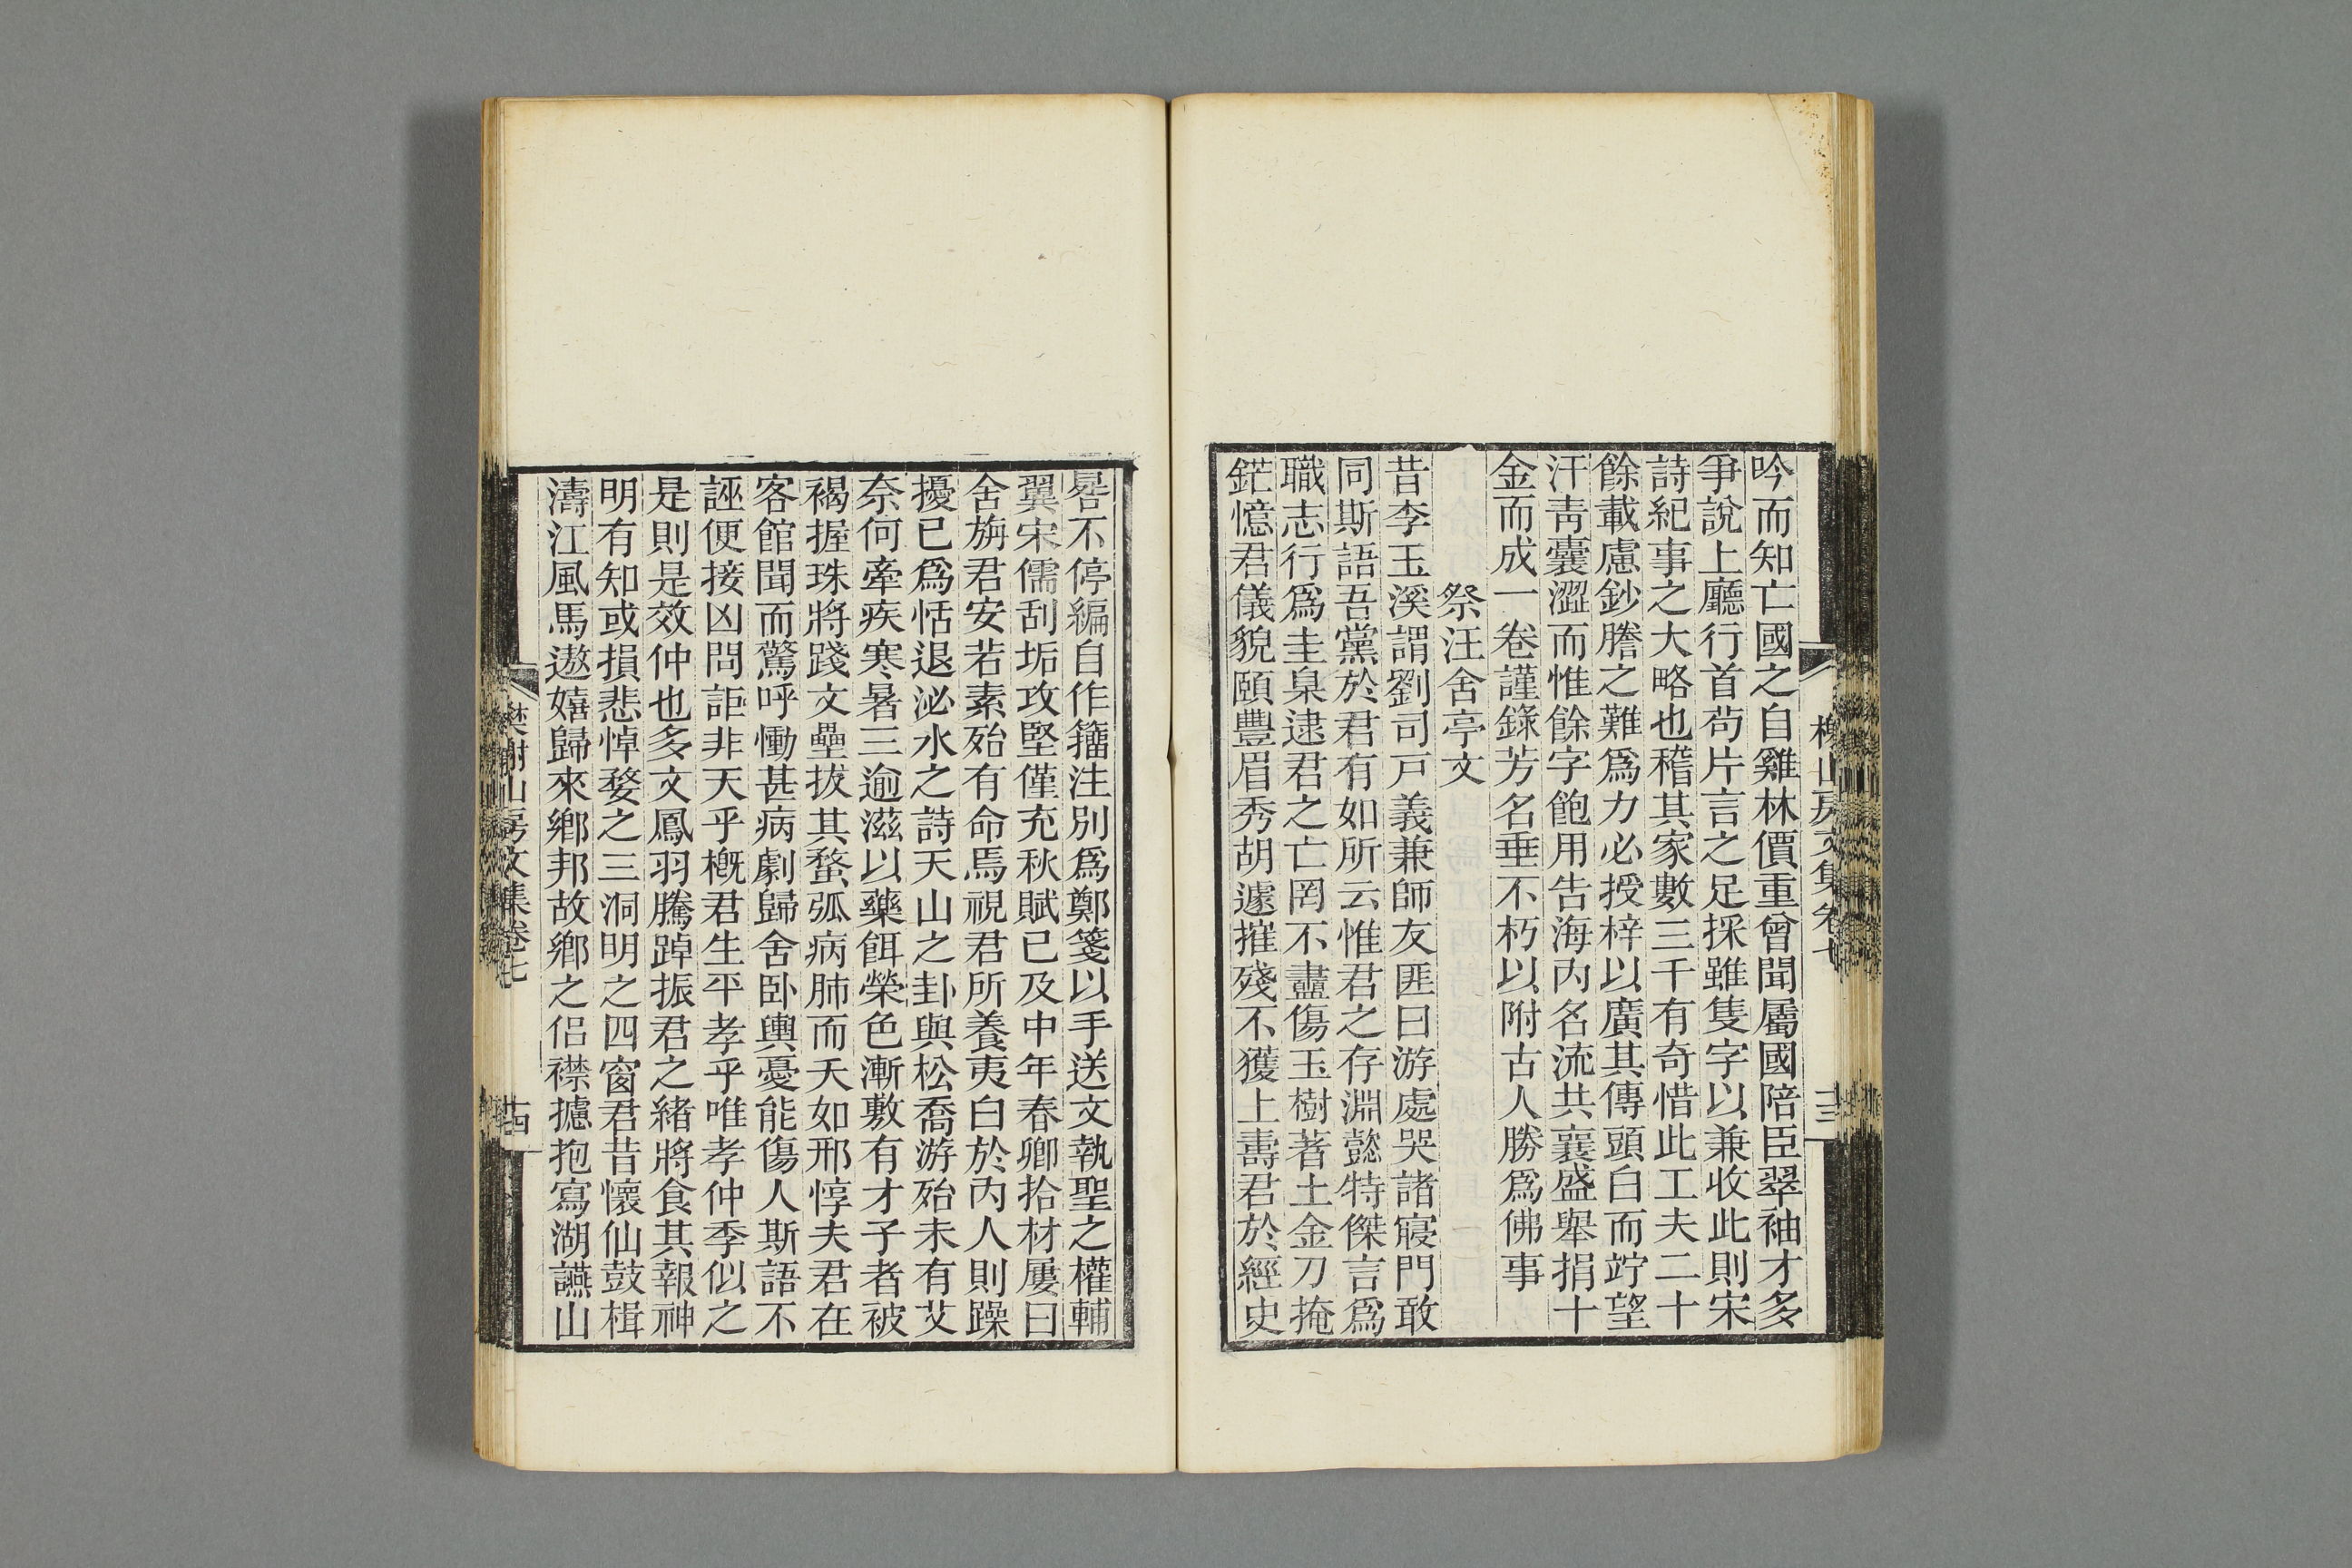 吟而知亡國之自雞林價重曾聞屬國陪臣翠袖才多
爭說上廳行首苟片言之足採雖隻字以兼收此則宋
詩紀事之大略也稽其家數三千有奇惜此工夫二十
餘載慮鈔謄之難爲力必授梓以廣其傳頭白而竚望
汗靑囊澀而惟餘字飽用告海內名流共襄盛舉捐十
金而成一卷謹錄芳名垂不朽以附古人勝爲佛事
祭汪舍亭文
昔李玉溪謂劉司戸義兼師友匪曰游處哭諸寢門敢
同斯語吾黨於君有如所云惟君之存淵懿特傑言爲
職志行爲圭臬逮君之亡罔不盡傷玉樹著土金刀掩
鋩憶君儀貌頤豐眉秀胡遽摧殘不獲上壽君於經史
晷不停編自作籀注別爲鄭箋以手送文執聖之權輔
翼宋儒刮垢攻堅僅充秋賦已及中年春卿拾材屢曰
舍旃君安若素殆有命焉視君所養夷白於內人則躁
擾已爲恬退泌水之詩天山之卦與松喬游殆未有艾
奈何牽疾寒暑三逾滋以藥餌榮色漸敷有才子者被
褐握珠將踐文壘拔其蝥弧病肺而夭如邢惇夫君在
客館聞而驚呼慟甚病劇歸舍卧輿憂能傷人斯語不
誣便接凶問詎非天乎槪君生平孝乎唯孝仲季似之
是則是效仲也多文鳳羽騰踔振君之緒將食其報神
明有知或損悲悼婺之三洞明之四窗君昔懷仙鼓楫
濤江風馬遨嬉歸來鄉邦故鄉之侶襟攄抱寫湖讌山
樊榭山房文集卷七
十四
樊榭山房文集卷七
十三